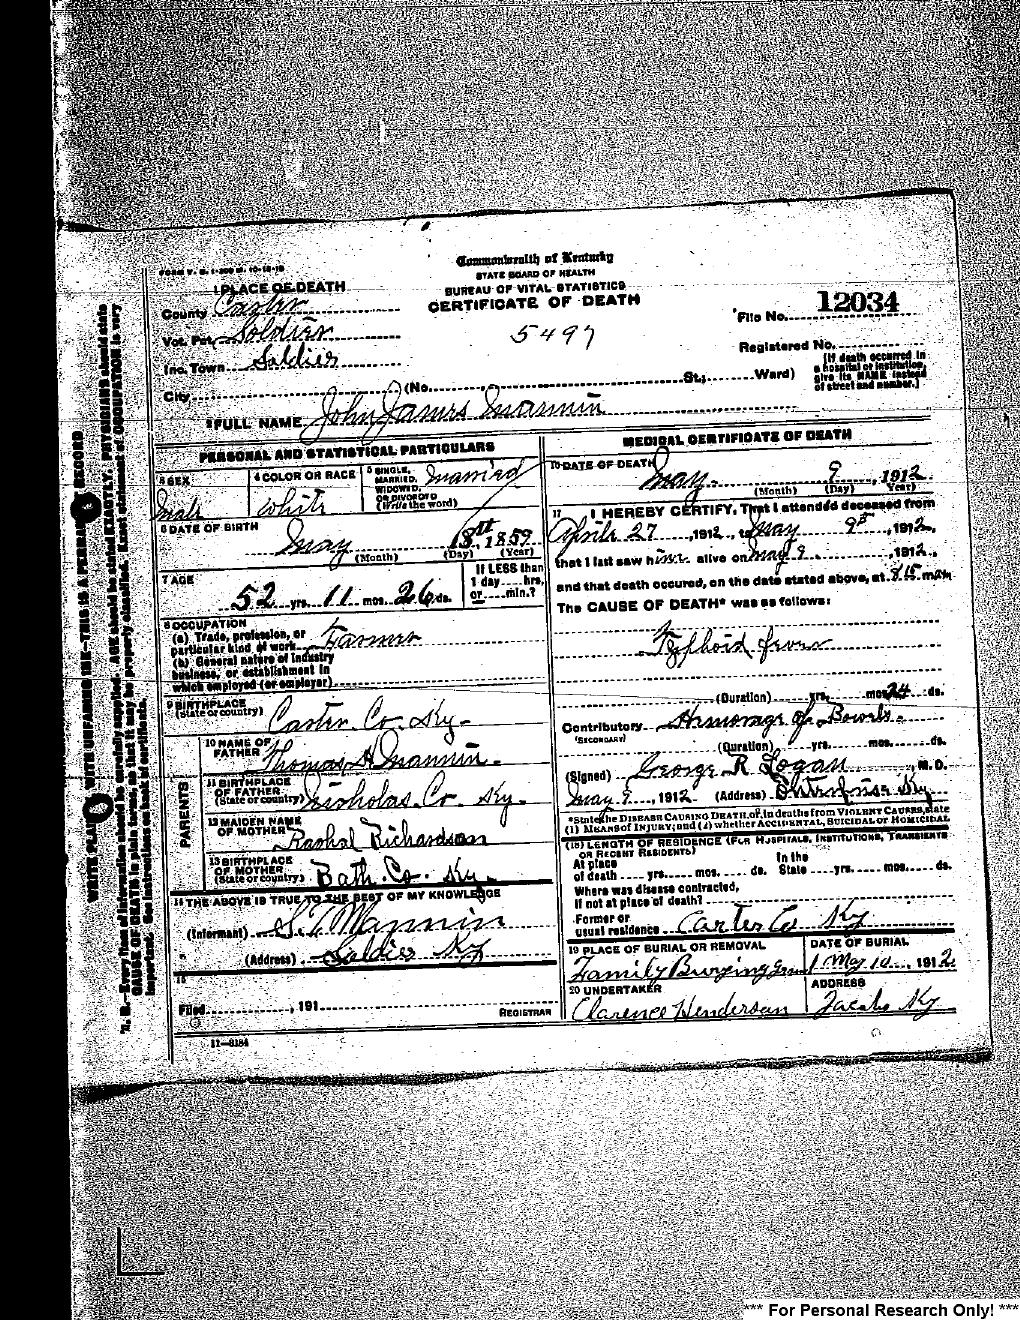 Commonwealth of Kentucky
STATE BOARD OF HEALTH
BUREAU OF VITAL STATISTICS
CERTIFICATE OF DEATH
1 PLACE OF DEATH
County Carter
Vot. Pct. Soldier
Inc. Town Soldier
City (No. St.; Ward)
5497
File No. 12034
Registered No.
[If death occurred in
a hospital or institution,
give its NAME instead
of street and number.]
2 FULL NAME John James Mannin
PERSONAL AND STATISTICAL PARTICULARS
3 SEX Male
4 COLOR OR RACE White
5 SINGLE, MARRIED, WIDOWED, OR DIVORCED (Write the word) Married
6 DATE OF BIRTH
May 18th 1859
(Month) (Day) (Year)
7 AGE
52 yrs. 11 mos. 26 ds.
If LESS than
1 day hrs.
or min.?
8 OCCUPATION
(a) Trade, profession, or
particular kind of work Farmer
(b) General nature of industry
business, or establishment in
which employed (or employer)
9 BIRTHPLACE
(State or country) Carter Co. Ky-
PARENTS
10 NAME OF
FATHER Thomas H Mannin.
11 BIRTHPLACE
OF FATHER
(State or country) Nicholas Co. Ky.
12 MAIDEN NAME
OF MOTHER Rachal Richardson
13 BIRTHPLACE
OF MOTHER
(State or country) Bath Co. Ky.
14 THE ABOVE IS TRUE TO THE BEST OF MY KNOWLEDGE
(Informant) S.T. Mannin
(Address) Soldier Ky
15
Filed , 191
REGISTRAR
11—6184
MEDICAL CERTIFICATE OF DEATH
16 DATE OF DEATH
May 9, 1912
(Month) (Day) Year)
17 I HEREBY CERTIFY, That I attended deceased from
April 27, 1912, to May 9th, 1912,
that I last saw him alive on May 9, 1912,
and that death occured, on the date stated above, at 8 15 m.
The CAUSE OF DEATH* was as follows:
Typhoid fever
(Duration) yrs. mos. 24 ds.
Contributory Hemorrage of Bowels.
(SECONDARY)
(Duration) yrs. mos. ds.
(Signed) George R Logan, M. D.
May 9, 1912 (Address) Ky
*State the DISEASE CAUSING DEATH, or, in deaths from VIOLENT CAUSES, state
(1) MEANS of INJURY; and (2) whether ACCIDENTAL, SUICIDAL or HOMICIDAL
(18) LENGTH OF RESIDENCE (FOR HOSPITALS, INSTITUTIONS, TRANSIENTS
OR RECENT RESIDENTS)
At place In the
of death yrs. mos. ds. State yrs. mos. ds.
Where was disease contracted,
If not at place of death?
Former or
usual residence Carter Co Ky
19 PLACE OF BURIAL OR REMOVAL
Family Burying
DATE OF BURIAL
May 10, 1912
20 UNDERTAKER
Clarence Henderson
ADDRESS
Jacobs Ky
WRITE PLAINLY WITH UNFADING INK—THIS IS A PERMANENT RECORD
N. B.—Every item of information should be carefully supplied. AGE should be stated EXACTLY. PHYSICIANS should state
CAUSE OF DEATH in plain terms, so that it may be properly classified. Exact statement of OCCUPATION is very
important. See instructions on back of certificate.
*** For Personal Research Only! ***